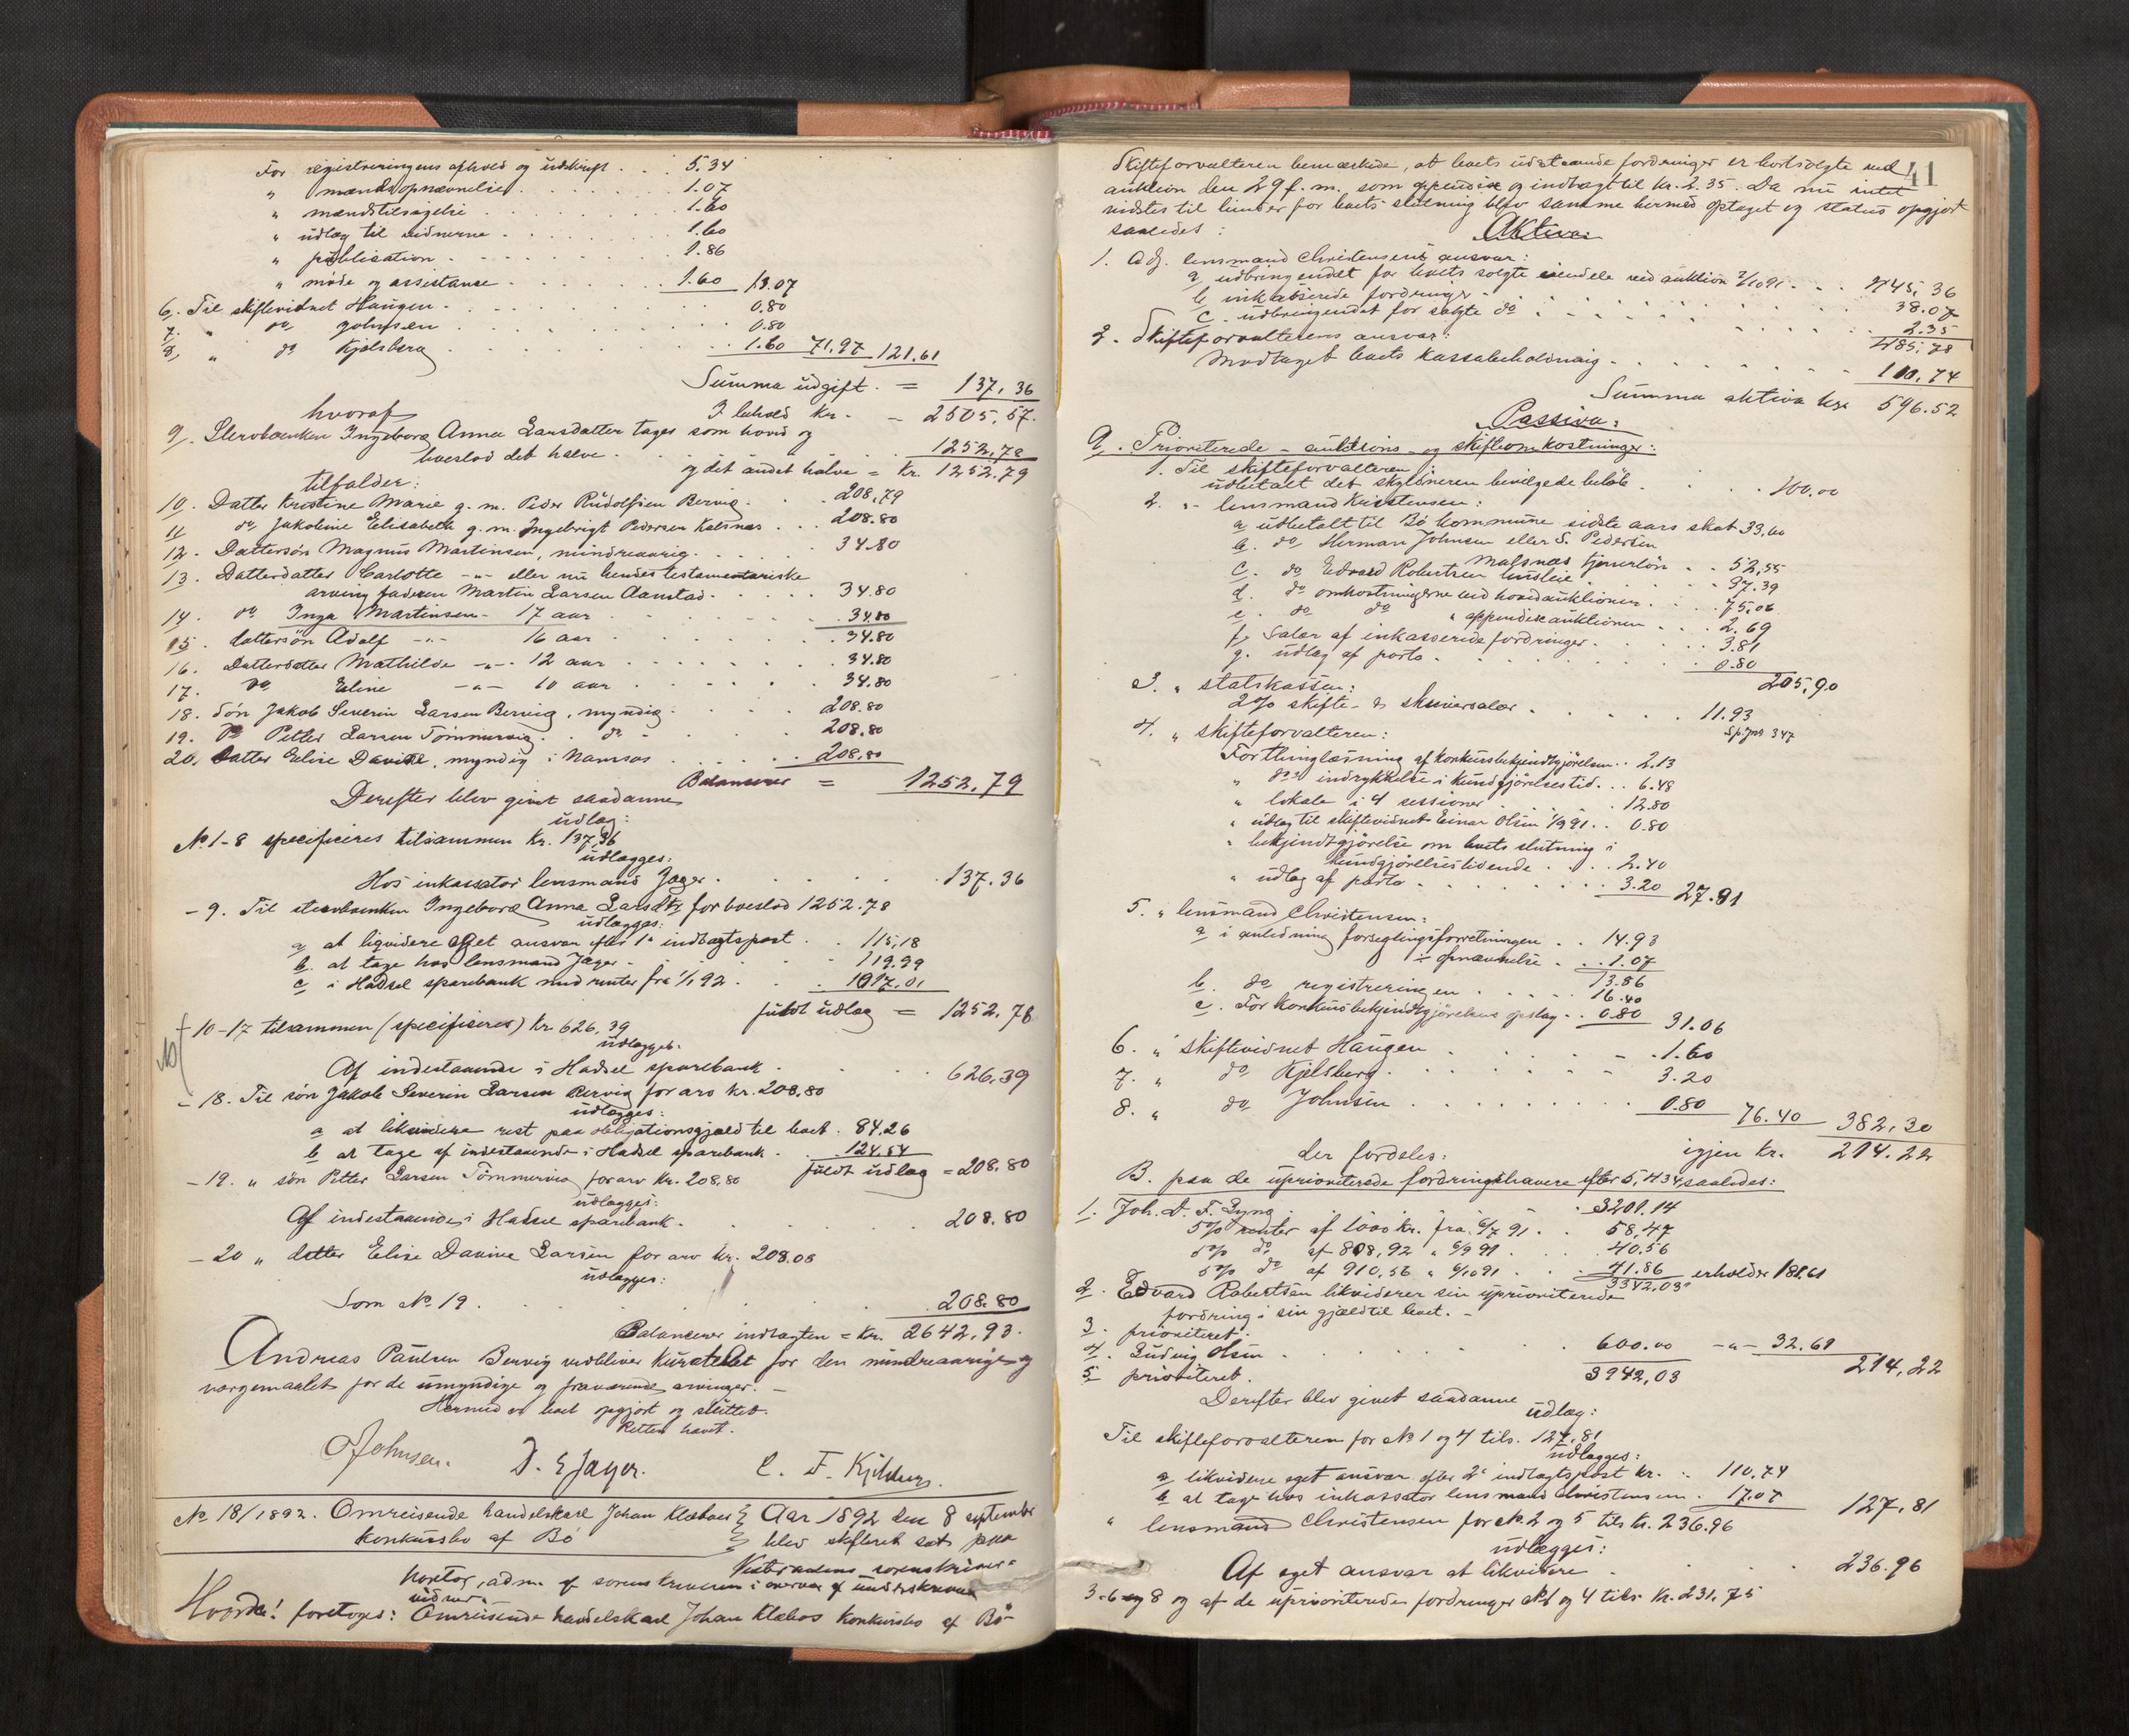 For registreringens afhold og udskrift . . . 5.34
" mændsopnævnelse . . . 1.07
" mændstilsigelse . . . 1.60
" udlæg til vidnerne . . . 1.60
" publication . . . 1.86
" møde og assistance . . . 1.60 13.07
6. Til skiftevidnet Haugen . . . 0.80
7. " do Johnsen . . . 0.80
8. " do Kjelsberg . . . 1.60 71.97 121.61
Summa udgift . = 137.36
hvoraf I behold kr. - 2505.57.
9. Stervboenken Ingeborg Anna Larsdatter tages som hoved og
boeslod det halve . . . 1252.78
tilfalder: og det andet halve = Kr. 1252.79
10. Datter Kristine Marie g. m. Peder Rudolfsen Bervig . . . 208.79
11 do Jakobine Elisabeth g. m. Ingebrigt Pedersen Kalsnæs . . . 208.80
12. Dattersøn Magnus Martinsen, mindreaarig . . . 34.80
13. Datterdatter Carlotte -"- eller nu hendes testamentariske
arving faderen Martin Larsen Aanstad . . . 34.80
14. do Inga Martinsen - 17 aar . . . 34.80
15. dattersön Adolf -"- 16 aar . . . 34.80
16. Datterdatter Mathilde -"- 12 aar . . . 34.80
17. do Eline -"- 10 aar . . . 34.80
18. Sön Jakob Severin Larsen Bervig, myndig . . . 208.80
19. do Petter Larsen Tømmervig . . do . . . 208.80
20. Datter Elise Davine, myndig i Namsos . . . 208.80
Balancerer = 1252.79
Derefter blev givet saadanne
udlæg:
No 1-8 specificeres tilsammen Kr. 137.36
udlægges:
Hos inkassator lensmand Jæger . . . 137.36
- 9. Til stervboenken Ingeborg Anna Larsdtr for boeslod 1252.78
udlægges:
a at liqvidere eget ansvar efter 1e indtægtspost . . 115,18
b. at tage hos lensmand Jæger . . . 119.99
c i Hadsel sparebank med renter fra 1/1 92 . . . 1017.01
fuldt udlæg = 1252.78
10-17 tilsammen (specificeres) Kr 626.39
udlægges.
Af indestaaende i Hadsel sparebank . . . 626.39
- 18. Til sön Jakob Severin Larsen Bervig for arv kr. 208.80
udlægges:
a at likvidere rest paa obligationsgjæld til boet . 84.26
b at tage af indestaaende i Hadsel sparebank . . 124.54
fuldt udlæg = 208.80
- 19. " sön Petter Larsen Tömmervig for arv Kr. 208.80
udlægges:
Af indestaaende i Hadsel sparebank . . . 208.80
- 20 " datter Elise Davine Larsen for arv kr. 208.08
udlægges:
Som No 19 . . . 208.80
Balancerer indtægten = Kr. 2642.93.
Andreas Paulsen Bervig vedbliver Kuratelet for den mindreaarige og
værgemaalet for de umyndige og fraværende arvinger. -
Hermed er boet opgjort og sluttet.
Retten hævet.
Johnsen. D. E Jæger. C. F. Kjelsberg.
No 18/1892. Omreisende handelskarl Johan Klæboes } Aar 1892 den 8 september
konkursbo af Bö } blev skifteret sat paa
Vesteraalens sorenskriver-
kontor, adm. af sorenskriveren i overvær af undertskrevne
vidner.
Hvorda! foretoges: Omreisende handelskarl Johan Klæbos konkursbo af Bö
41
Skifteforvalteren bemærkede, at boets udestaaende fordringer er bortsolgte ved
auktion den 29 f. m. som appendix og indbragt til kr. 2.35. Da nu intet
vidstes til hinder for boets slutning blev samme hermed optaget og status opgjort
saaledes: Aktiva:
1. Adj. lensmand Christensens ansvar:
a udbringendet for boets solgte eiendele ved auktion 2/10 91 . . . 445.36
b inkasserede fordringer . . . 38.07
c. udbringendet for solgte do . . . 2.35
485.78
2. Skifteforvalterens ansvar:
Modtaget boets kassabeholdning . . . 110.74
Summa aktiva kr. 596.52
Passiva:
A. Prioriterede - auktions- og skifteomkostninger:
1. Til skifteforvalteren:
udbetalt det skyldneren bevilgede beløb . . . 100.00
2. -"- lensmand Kristensen:
a udbetalt til Bö kommune sidste aars skat 33,60
b. do Herman Johnsen eller S. Pedersen
Malsnæs tjenerlön . . 52,55
c. do Edvard Robertsen husleie . . . 37.39
d. do omkostningerne ved hovedauktionen . . . 75.06
e. do do " appendixauktionen . . . 2.69
f. Salær af inkasserede fordringer . . . 3.81
g. udlæg af porto . . . 0.80
205.90
3. " statskassen:
2% skifte- & skriversalær . . . 11.93
Sp.jnr 347
4. " skifteforvalteren:
For thinglæsning af konkursbekjendtgjörelsen . . 2.13
" do's indrykkelse i Kundgjörelsestid. . . 6.48
" lokale i 4 sessioner . . . 12.80
" udlæg til skiftevidnet Einar Olsen 1/9 91 . . 0.80
" bekjendtgjörelse om boets slutning i
kundgjörelsestidende . . . 2.40
" udlæg af porto . . . 3.20 27.81
5. " lensmand Christensen:
a i anledning forseglingsforretningen . . 14.93
÷ opnævnelse . . . 1.07
13.86
b. do registreringen . . . 16.40
c. For konkursbekjendtgjörelsens opslag . . 0.80 31.06
6. " skiftevidnet Haugen . . . 1.60
7. " do Kjelsberg . . . 3.20
8. " do Johnsen . . . 0.80 76.40 382,30
der fordeles: igjen kr. 214.22
B. paa de uprioriterede fordringshavere efter 5,434 saaledes:
1. Joh. A. F. Lyng . . . 3201.14
5% renter af 1000 kr. fra 6/7 91 . . 58,47
5% do af 808,92 " 6/9 91 . . . 40.56
5% do af 910,56 " 6/10 91 . . . 41.86 erholder 181.61
3342,03
2. Edvard Robertsen likviderer sin uprioriterede
fordring i sin gjæld til boet. -
3. prioriteret.
4. Ludvig Olsen . . . 600.00 -"- 32.61
5 prioriteret. 3942,03 214,22
Derefter blev givet saadanne
udlæg:
Til skifteforvalteren for No 1 og 4 tils. 127.81
udlægges:
a likvidere eget ansvar efter 2e indtægtspost kr. . . 110,74
b at tage hos inkassator lensmand Christensen . 17.07 127.81
" lensmand Christensen for No 2 og 5 tils kr. 236.96
udlægges:
Af eget ansvar at likvidere . . . 236.96
3-6 og 8 og af de uprioriterede fordringer No 1 og 4 tils. Kr. 231,75